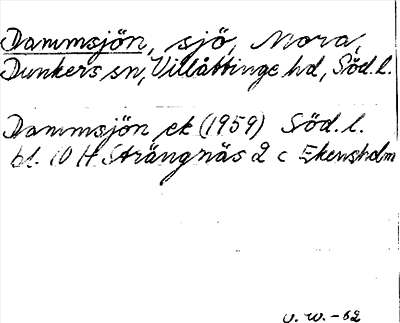 Dammsjön, sjö, Mora,
Dunkers sn, Villåttinge hd, Söd.l.
Dammsjön ek (1959) Söd.l.
bl. 10 H Strängnäs 2 c Ekensholm
U.W.-62